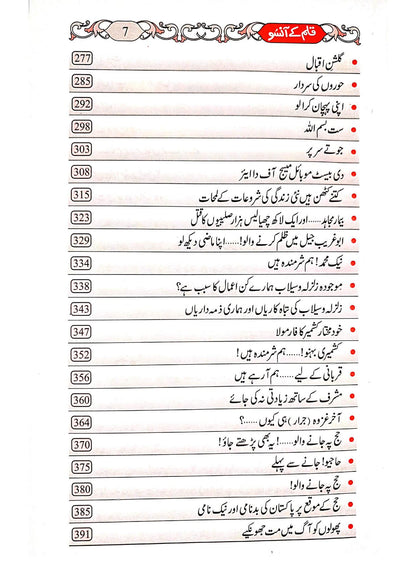 قلم کے آنسو 7
گلشن اقبال 277
حوروں کی سردار 285
اپنی پہچان کرا لو 292
ست بسم اللہ 298
جوتے سر پر 303
دی بیسٹ موبائل میسج آف دا ایئر 308
کتنے کٹھن ہیں نئی زندگی کی شروعات کے لمحات 315
بیمار مجاہد......اور ایک لاکھ چھیالیس ہزار صلیبیوں کا قتل 323
ابوغریب جیل میں ظلم کرنے والو!......اپنا ماضی دیکھ لو 329
نیک محمد! ہم شرمندہ ہیں 334
موجودہ زلزلہ و سیلاب ہمارے کن اعمال کا سبب ہے؟ 338
زلزلہ و سیلاب کی تباہ کاریاں اور ہماری ذمہ داریاں 343
خود مختار کشمیر کا فارمولا 347
کشمیری بہنو!......ہم شرمندہ ہیں! 352
قربانی کے لیے......ہم آ رہے ہیں 356
مشرف کے ساتھ زیادتی نہ کی جائے 360
آخر غزوہ (جرار) ہی کیوں......؟ 364
حج پہ جانے والو......! یہ بھی پڑھتے جاؤ! 370
حاجیو! جانے سے پہلے 375
حج پہ جانے والو! 380
حج کے موقع پر پاکستان کی بدنامی اور نیک نامی 385
پھولوں کو آگ میں مت جھونکیے 391